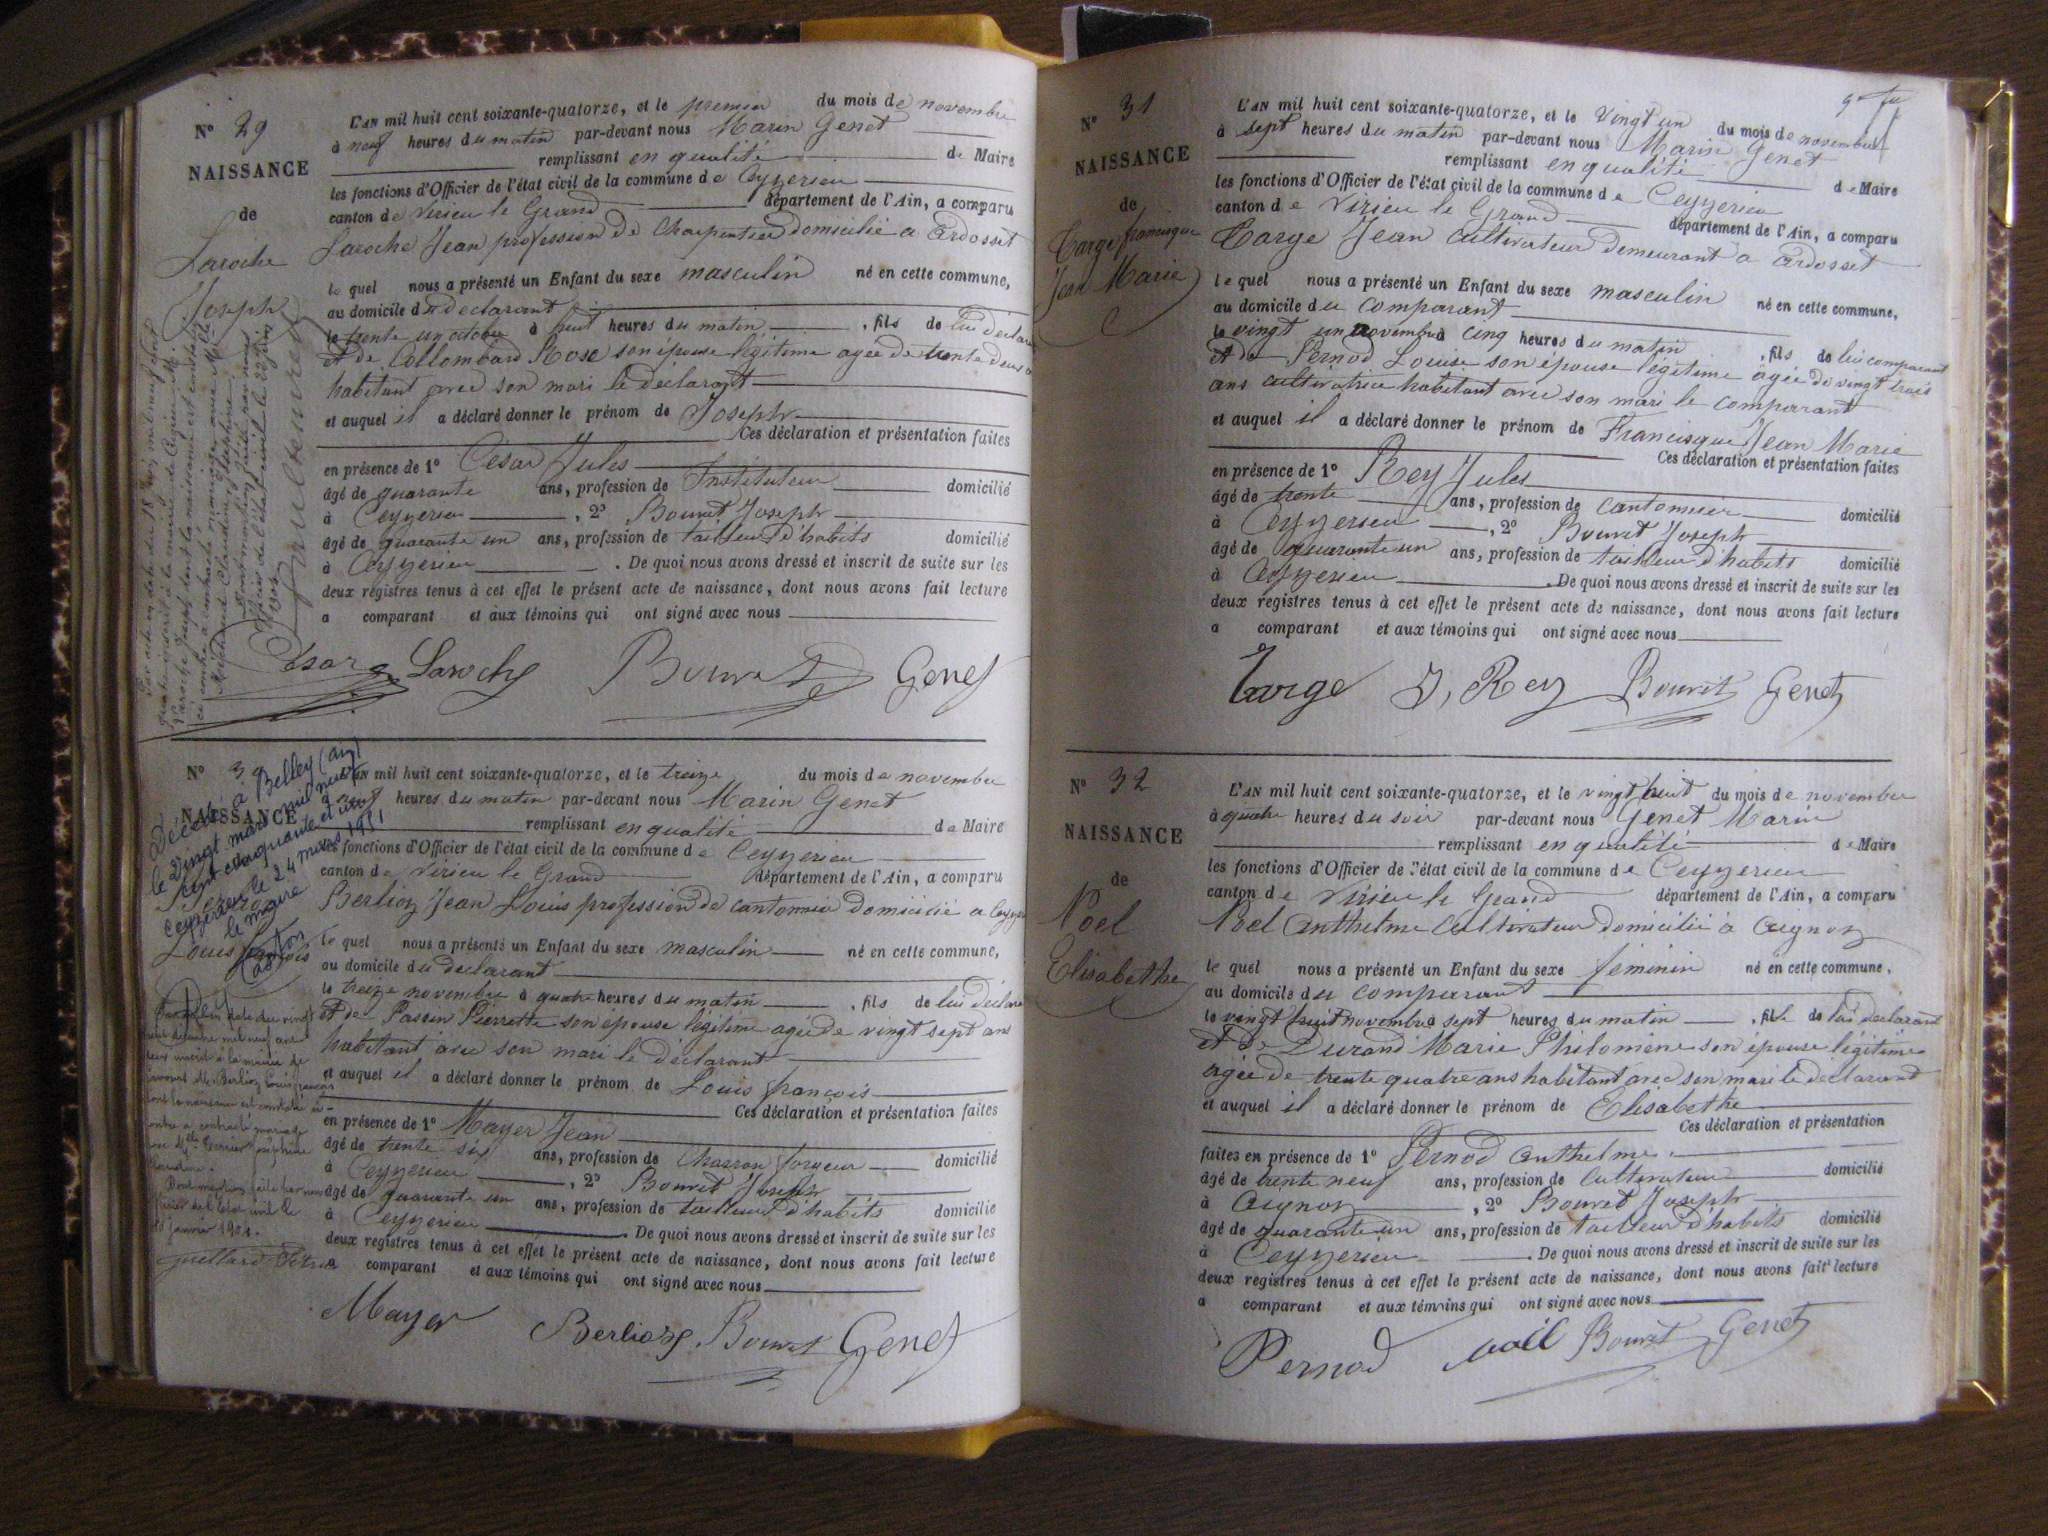 N° 29
NAISSANCE
de
Laroche
Joseph
L'AN mil huit cent soixante-quatorze, et le premier du mois de novembre
à neuf heures du matin par-devant nous Marin Genet
remplissant en qualité de Maire
les fonctions d'Officier de l'état civil de la commune de Ceyzerieu
canton de Virieu le Grand département de l'Ain, a comparu
Laroche Jean profession de charpentier domicilié a Ardosset
le quel nous a présenté un Enfant du sexe masculin né en cette commune,
au domicile du déclarant
le trente un octobre à huit heures du matin , fils de lui déclarant
et de Collombard Rose son épouse légitime agée de trente deux
habitant avec son mari le déclarant
et auquel il a déclaré donner le prénom de Joseph
Ces déclaration et présentation faites
en présence de 1° César Jules
âgé de quarante ans, profession de Instituteur domicilié
à Ceyzerieu , 2° Bouvet Joseph
âgé de quarante un ans, profession de tailleur d'habits domicilié
à Ceyzerieu . De quoi nous avons dressé et inscrit de suite sur les
deux registres tenus à cet effet le présent acte de naissance, dont nous avons fait lecture
a comparant et aux témoins qui ont signé avec nous
César Laroche Bouvet Genet
N° 30
NAISSANCE
Décédé à Belley (Ain)
le vingt mars mil neuf
cent cinquante et un
Ceyzerieu le 24 mars 1951
le maire
Louis françois
L'AN mil huit cent soixante-quatorze, et le treize du mois de novembre
à neuf heures du matin par-devant nous Marin Genet
remplissant en qualité de Maire
les fonctions d'Officier de l'état civil de la commune de Ceyzerieu
canton de Virieu le Grand département de l'Ain, a comparu
Berlioz Jean Louis profession de cantonnier domicilié a Ceyzerieu
le quel nous a présenté un Enfant du sexe masculin né en cette commune,
au domicile du déclarant
le treize novembre à quatre heures du matin , fils de lui déclarant
et de Passin Pierrette son épouse légitime agée de vingt sept ans
habitant avec son mari le déclarant
et auquel il a déclaré donner le prénom de Louis françois
Ces déclaration et présentation faites
en présence de 1° Mayer Jean
âgé de trente six ans, profession de Charron forgeur domicilié
à Ceyzerieu , 2° Bouvet Joseph
âgé de quarante un ans, profession de tailleur d'habits domicilié
à Ceyzerieu . De quoi nous avons dressé et inscrit de suite sur les
deux registres tenus à cet effet le présent acte de naissance, dont nous avons fait lecture
a comparant et aux témoins qui ont signé avec nous
Mayer Berlioz Bouvet Genet
N° 31
NAISSANCE
de
Targe francisque
Jean Marie
L'AN mil huit cent soixante-quatorze, et le Vingt un du mois de novembre
à sept heures du matin par-devant nous Marin Genet
remplissant en qualité de Maire
les fonctions d'Officier de l'état civil de la commune de Ceyzerieu
canton de Virieu le Grand département de l'Ain, a comparu
Targe Jean cultivateur demeurant a Ardosset
le quel nous a présenté un Enfant du sexe masculin né en cette commune,
au domicile du comparant
le vingt un novembre à cinq heures du matin , fils de lui comparant
et de Pernod Louise son épouse légitime agée de vingt trois
ans cultivatrice habitant avec son mari le comparant
et auquel il a déclaré donner le prénom de Francisque Jean Marie
Ces déclaration et présentation faites
en présence de 1° Rey Jules
âgé de trente ans, profession de cantonnier domicilié
à Ceyzerieu , 2° Bouvet Joseph
âgé de quarante un ans, profession de tailleur d'habits domicilié
à Ceyzerieu . De quoi nous avons dressé et inscrit de suite sur les
deux registres tenus à cet effet le présent acte de naissance, dont nous avons fait lecture
a comparant et aux témoins qui ont signé avec nous
Targe J, Rey Bouvet Genet
N° 32
NAISSANCE
de
Noel
Elisabethe
L'AN mil huit cent soixante-quatorze, et le vingt huit du mois de novembre
à quatre heures du soir par-devant nous Genet Marin
remplissant en qualité de Maire
les fonctions d'Officier de l'état civil de la commune de Ceyzerieu
canton de Virieu le Grand département de l'Ain, a comparu
Noel Anthelme Cultivateur domicilié à Aignoz
le quel nous a présenté un Enfant du sexe féminin né en cette commune,
au domicile du comparant
le vingt huit novembre à sept heures du matin , fille de lui déclarant
et de Durand Marie Philomene son épouse légitime
agée de trente quatre ans habitant avec son mari le déclarant
et auquel il a déclaré donner le prénom de Elisabethe
Ces déclaration et présentation
faites en présence de 1° Pernod Anthelme
âgé de trente neuf ans, profession de Cultivateur domicilié
à Aignoz , 2° Bouvet Joseph
âgé de quarante un ans, profession de tailleur d'habits domicilié
à Ceyzerieu . De quoi nous avons dressé et inscrit de suite sur les
deux registres tenus à cet effet le présent acte de naissance, dont nous avons fait lecture
a comparant et aux témoins qui ont signé avec nous
Pernod Noël Bouvet Genet